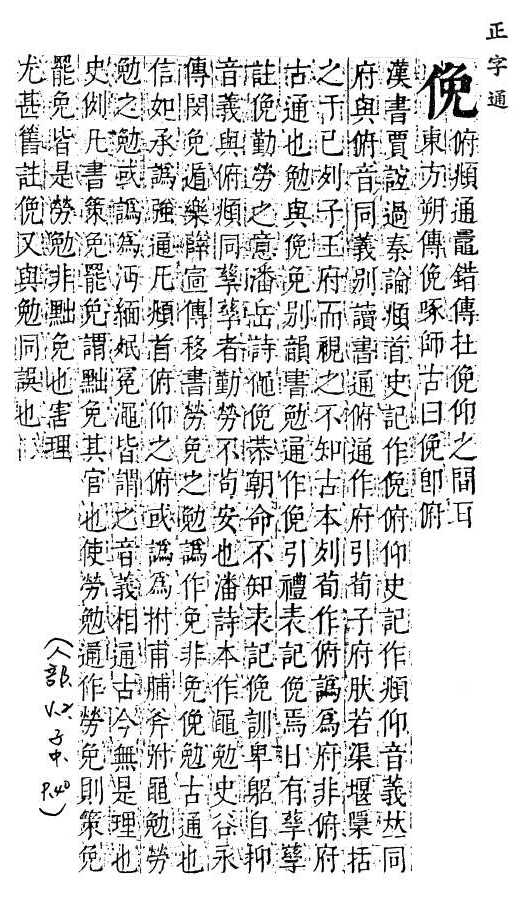 正字通
俛
俯頫通鼂錯傳杜俛仰之間曰
東方朔傳俛啄師古曰俛卽俯
漢書賈誼過秦論頫首史記作俛俯仰史記作頫仰音義𠀤同
府與俯音同義别讀書通俯通作府引荀子府肰若渠堰檃括
之于已列子王府而視之不知古本列荀作俯譌爲府非俯府
古通也勉與俛免别韻書勉通作俛引禮表記俛焉日有孳孳
註俛勤勞之意潘岳詩僶俛恭朝命不知表記俛訓卑躬自抑
音義與俯頫同孳孳者勤勞不苟安也潘詩本作黽勉史谷永
傳閔免遁樂薛宣傳移書勞免之勉譌作免非免俛勉古通也
信如承譌強通凡頫首俯仰之俯或譌爲拊甫脯斧弣黽勉勞
勉之勉或譌爲沔緬娓冕澠皆謂之音義相通古今無是理也
史例凡書策免罷免謂黜免其官也使勞勉通作勞免則策免
罷免皆是勞勉非黜免也害理
尤甚舊註俛又與勉同誤也
(人部 子中 P.40)